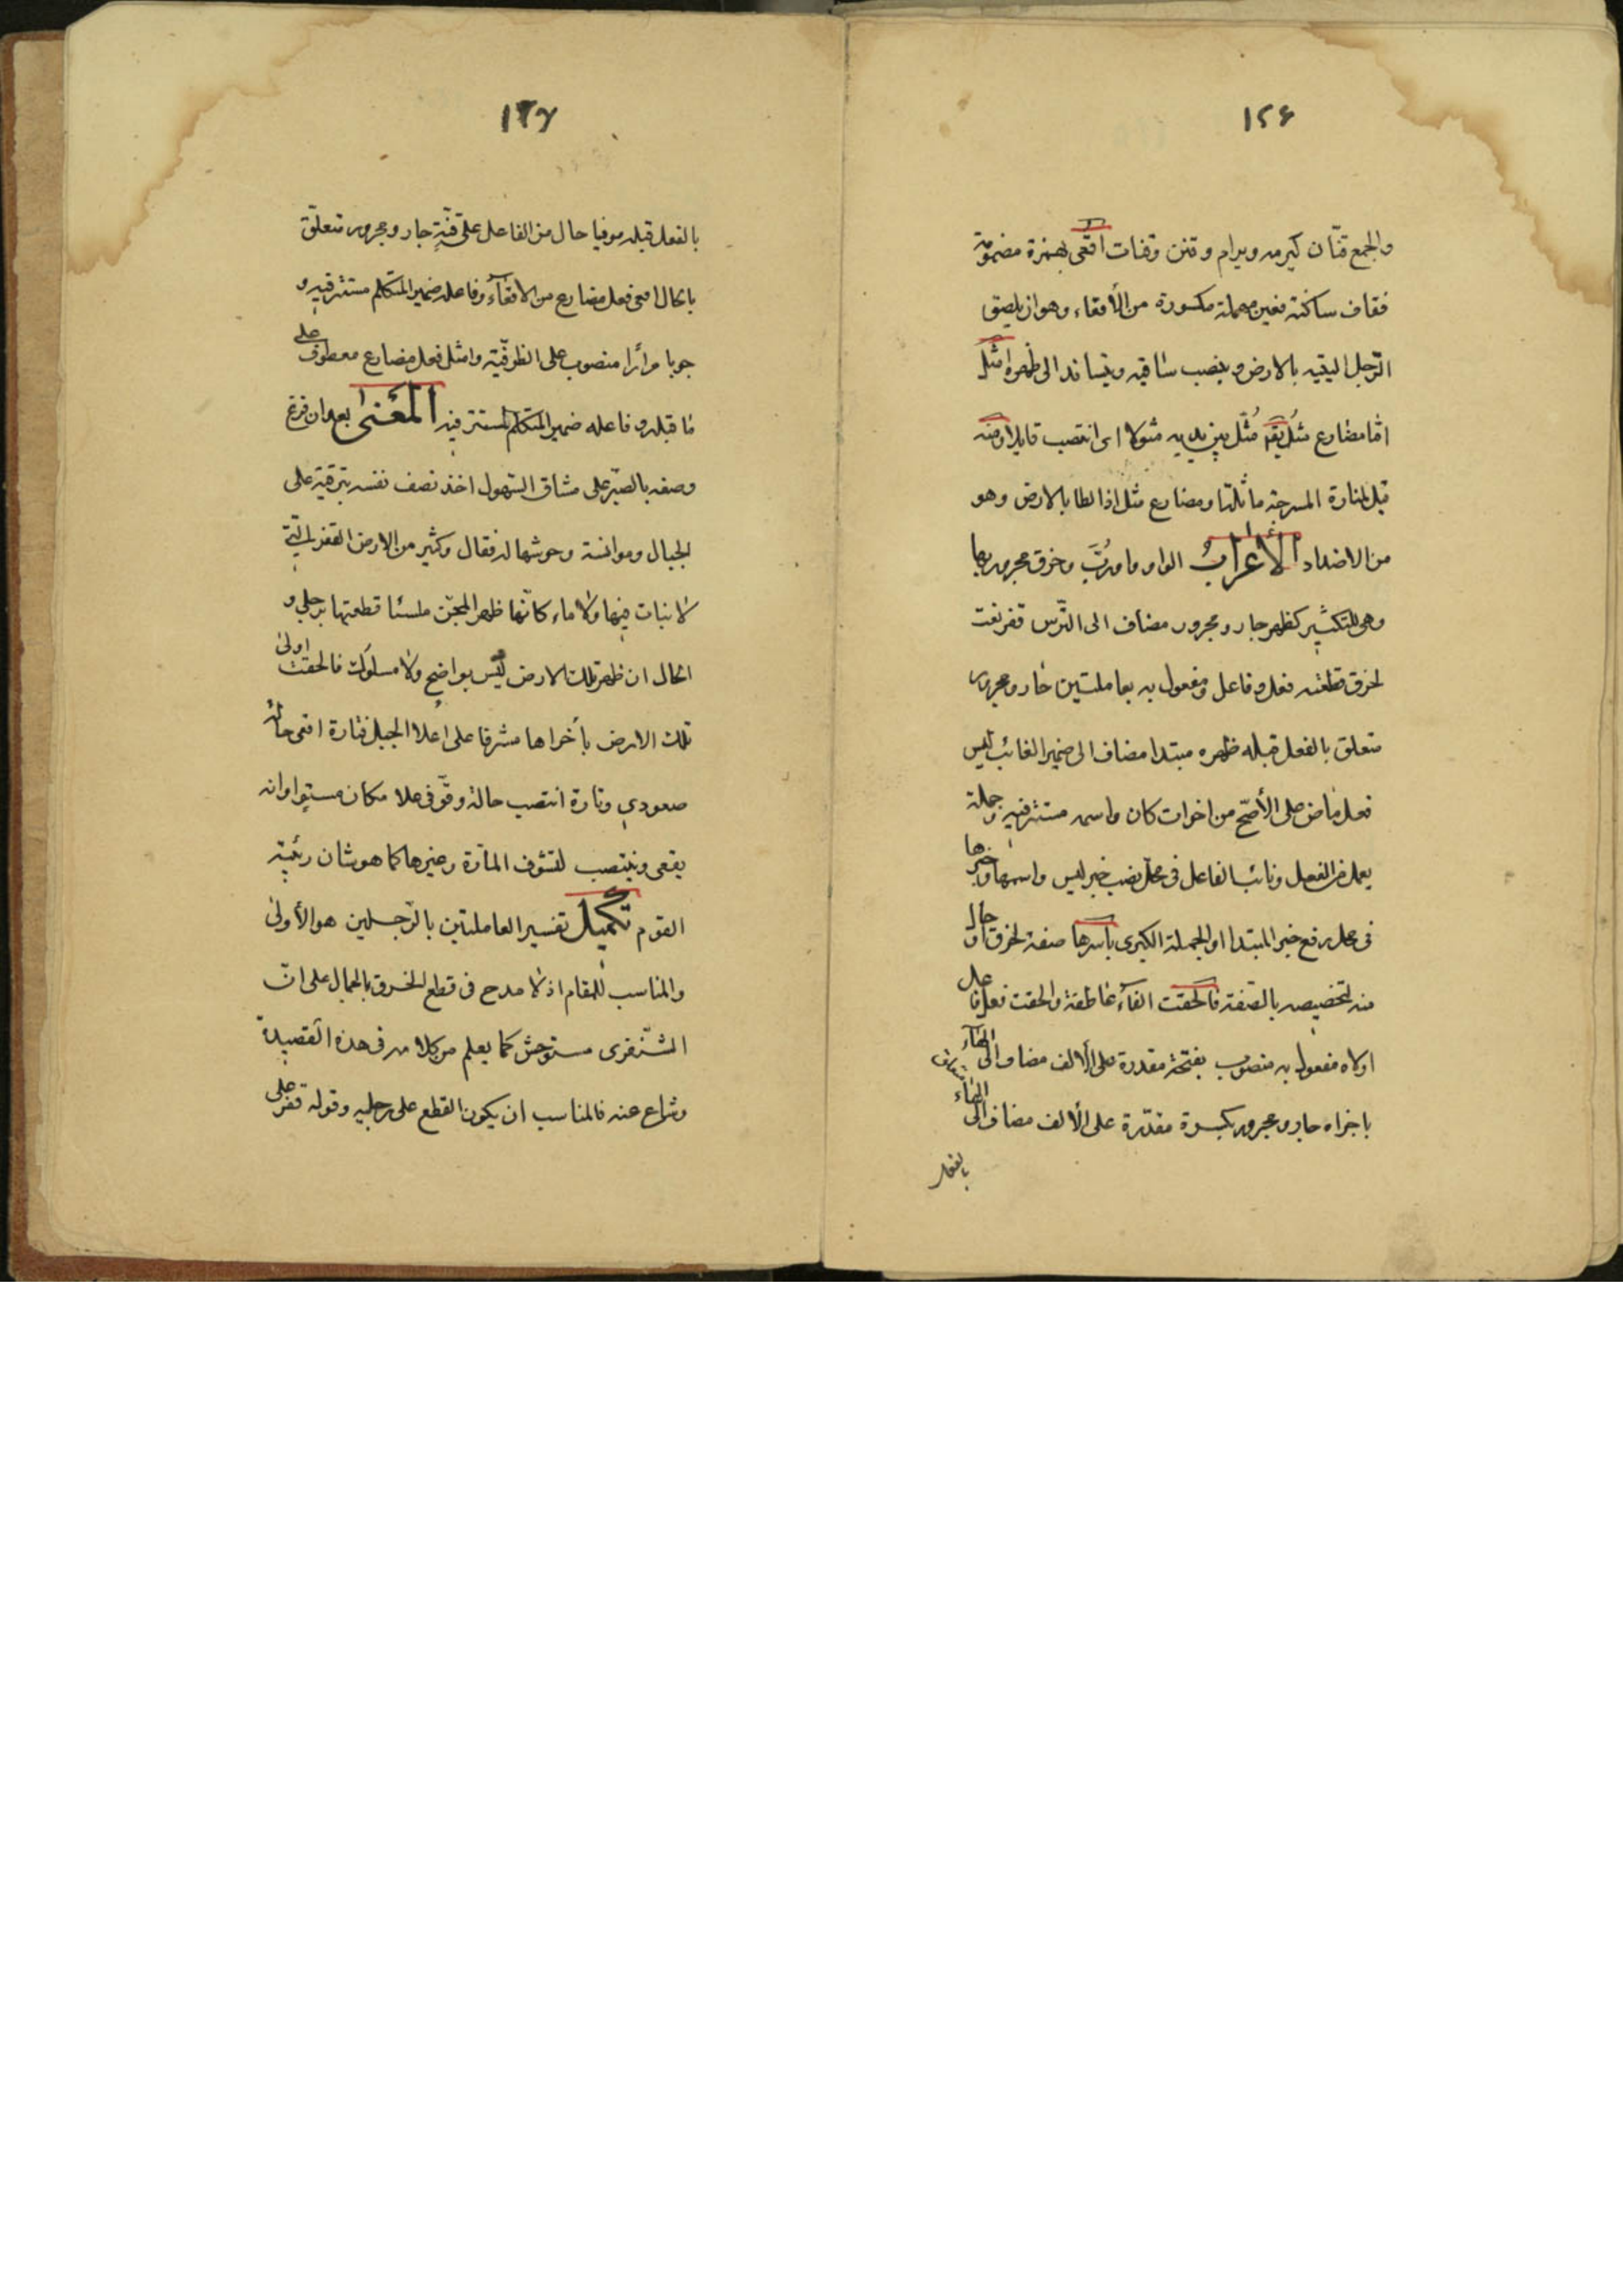 ١٢٦
والجمع قنان كبرمه وبرام وقنن وقنات اقعى بهمزة مضمومة
فقاف ساكنة فعين مهملة مكسورة من الأقعاء وهو ان يلصق
الرّجل اليتيه بالارض وينصب ساقيه ويتساند الى ظهره امثل
امّا مضارع مثل يقم مُثّل بين يديه مثولا اى انتصب قايما ومنه
قيل لمنارة المسرجة ماثلة اومضارع مثل اذا لطا بالارض وهو
من الاضداد الأعراب الواو واو رُبَّ وخرق مجرور بها
وهى للتكثير كظهر جار ومجرور مضاف الى التّرس قفر نعت
لخرق قطعته فعل وفاعل ومفعول به بعاملتين جار ومجرور
متعلق بالفعل قبله ظهره مبتدا مضاف الى ضمير الغائب ليس
فعل ماض على الأصّح من اخوات كان واسمه مستتر فيه وجملة
يعمل من الفعل ونائب الفاعل فى محلّ نصب خبر ليس واسمها وخبرها
فى محل رفع خبر المبتدا او الجملة الكبرى باسرها صفة لخرق او حال
منه لتخصيصه بالصّفة فالحقت الفآء عاطفة والحقت فعل وفاعل
اولاه مفعول به منصوب بفتحة مقدرة على الألف مضاف الى الهآء
باخراه جار ومجرور بكسرة مقدّرة على الألف مضاف الى الهاء
بالفعل
١٢٧
بالفعل قبله موفيا حال من الفاعل على قنّةٍ جار ومجرور متعلّق
بالحال اقعى فعل مضارع من الاقعآء وفاعله ضمير المتكلم مستتر فيه و
جوبا مرارا منصوب على الظرفيّة وامثل فعل مضارع معطوف على
ما قبله وفاعله ضمير المتكلم المستتر فيه المعنى بعد ان فرغ
وصفه بالصّبر على مشاق السّهول اخذ نصف نفسه بترقية على
الجبال وموانسة وحوشها له فقال وكثير من الارض القفر الّتى
لا نبات فيها ولا ماء كانّها ظهر المجنّ ملسئا قطعتها برجلي و
الحال ان ظهر تلك الارض ليس بواضح ولا مسلوك فالحقت اولى
تلك الارض بأخراها مشرفا على اعلا الجبل فتارة اقعى حالة
صعودي وتارة انتصب حالة وقوفى علا مكان مستو اوانه
يقعى وينتصب لتشوف المآرّة وغيرها كما هو شان ربئية
القوم تكميل تفسير العاملتين بالرّجلين هو الأولى
والمناسب للمقام اذ لا مدح فى قطع الخرق بالجمال على انّ
الشّنفرى مستوحش كما يعلم من كلامه فى هذه القصيدة
وشراع عنه فالمناسب ان يكون القطع على رجليه وقوله قفر على